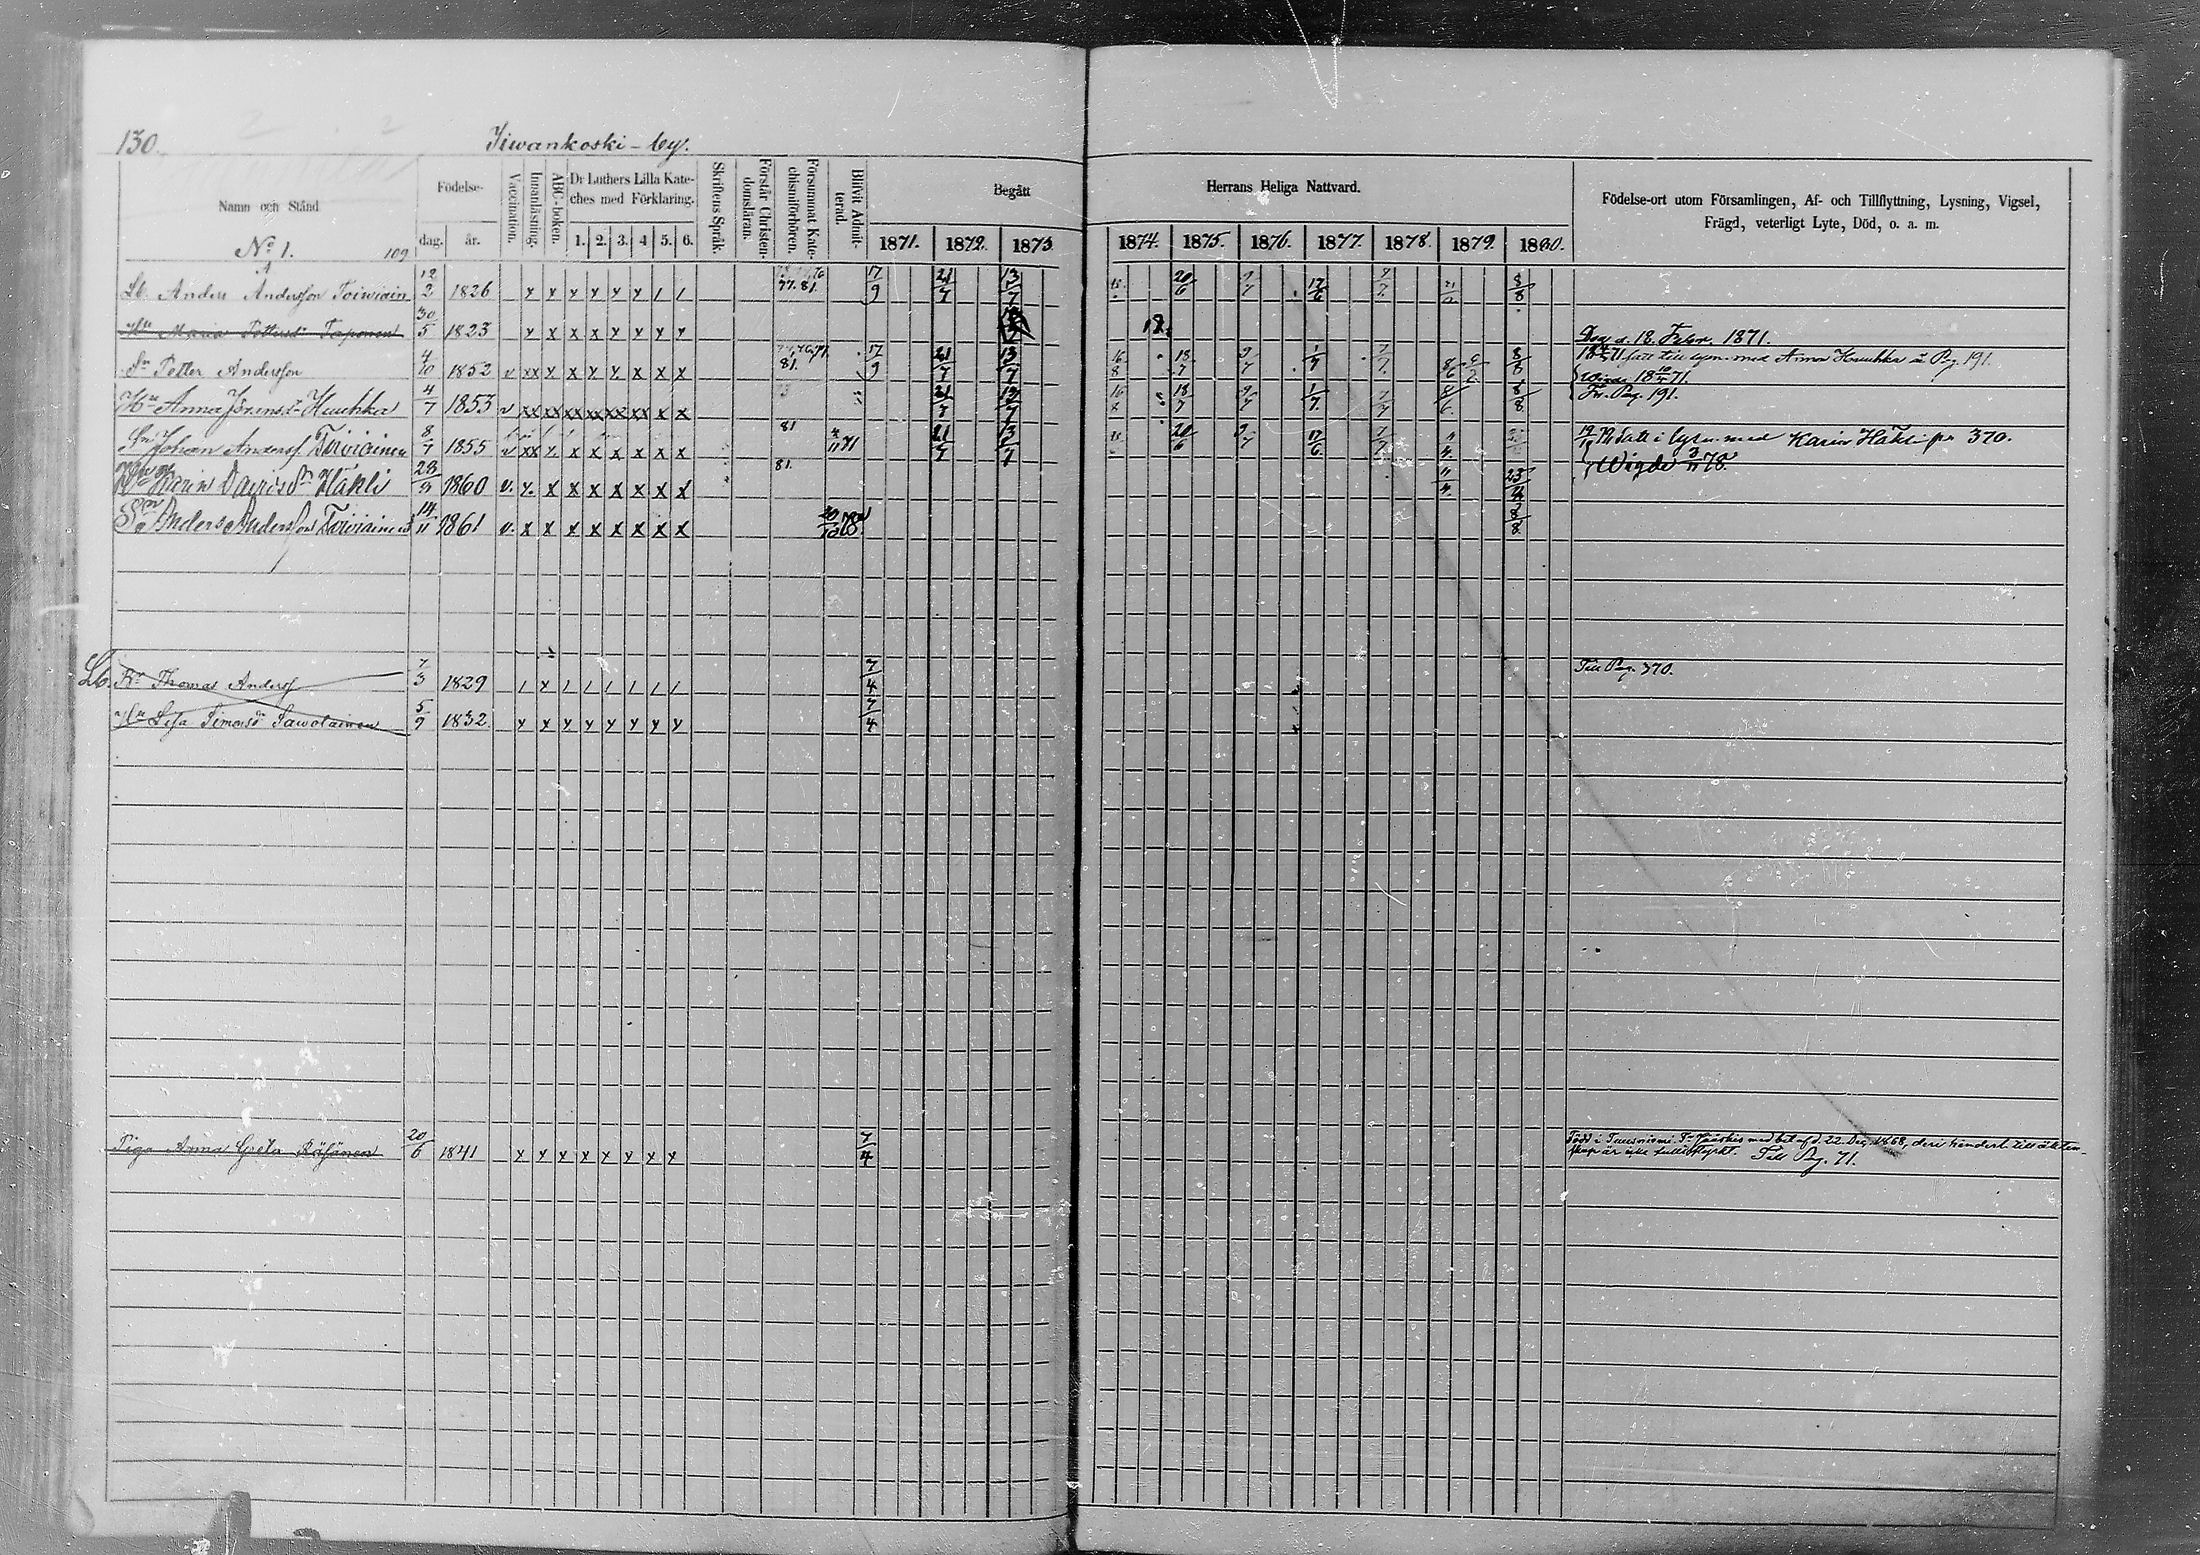 130.
Jiwankoski-by.
Namn och Stånd
Födelse-
dag. år.
Vaccination.
Innanläsning.
ABC-boken.
Dr Luthers Lilla Kate-
ches med Förklaring.
1. 2. 3. 4 5. 6.
Skriftens Språk.
Förstår Christen-
domsläran.
Försummat Kate-
chismiförhören.
Blifvit Admit-
terad.
Begått
1871. 1872. 1873
Herrans Heliga Nattvard.
1874. 1875. 1876. 1877. 1878. 1879. 1880.
Födelse-ort utom Församlingen, Af- och Tillflyttning, Lysning, Vigsel,
Frägd, veterligt Lyte, Död, o. a. m.
No 1. 109
Lb. Anders Andersson Toiwiain 12/2 1826 x x x x x x / / 77. 81. 17/9 21/7 13/7 20/6 9/7 17/6 7/7 8/8
Hu Maria Pettersdr Taponen 30/5 1823 x x x x x x x x 18. Dog d. 18. Febr. 1871.
Sn Petter Andersson 4/10 1852 v xx x x x x x x x 81. 17/9 21/7 13/7 16/8 18/7 9/7 1/7 7/7 8/6 8/8 till lysn. med Anna Huuhka å Pag. 191.
Hu Anna Jöransdr Huuhka 4/7 1853 v xx xx xx xx xx xx x x 73 21/7 13/7 16/8 18/7 9/7 1/7 7/7 8/6 8/8 Fr. Pag. 191.
Sn Johan Anderss Toiviainen 8/7 1855 v xx x x x x x x x 81 4/11 71 21/7 13/7 20/6 9/7 17/6 7/7 Satt i lysn. med Karin Häkli pa 370.
Hu Karin Davidsdr Häkli 28/9 1860 v. x. x x x x x x x 81. 23/4 Wigde 3/11 78.
Son Anders Andersson Toiviainen 14/11 1861 v. x x x x x x x x 20/10 78 8/8
Lb. Br Thomas Anderss 7/3 1829 / x / / / / / / 7/4 Till Pag. 370.
Hu Lisa Simonsdr Sawolainen 5/9 1832. x x x x x x x x 7/4
Piga Anna Greta Räsänen 20/6 1841 x x x x x x x x 7/4 Född i
med bet. af d. 22. Dec. 1868, deri hindert till äkten-
skap är icke fullstyrkt. Till Pag. 71.